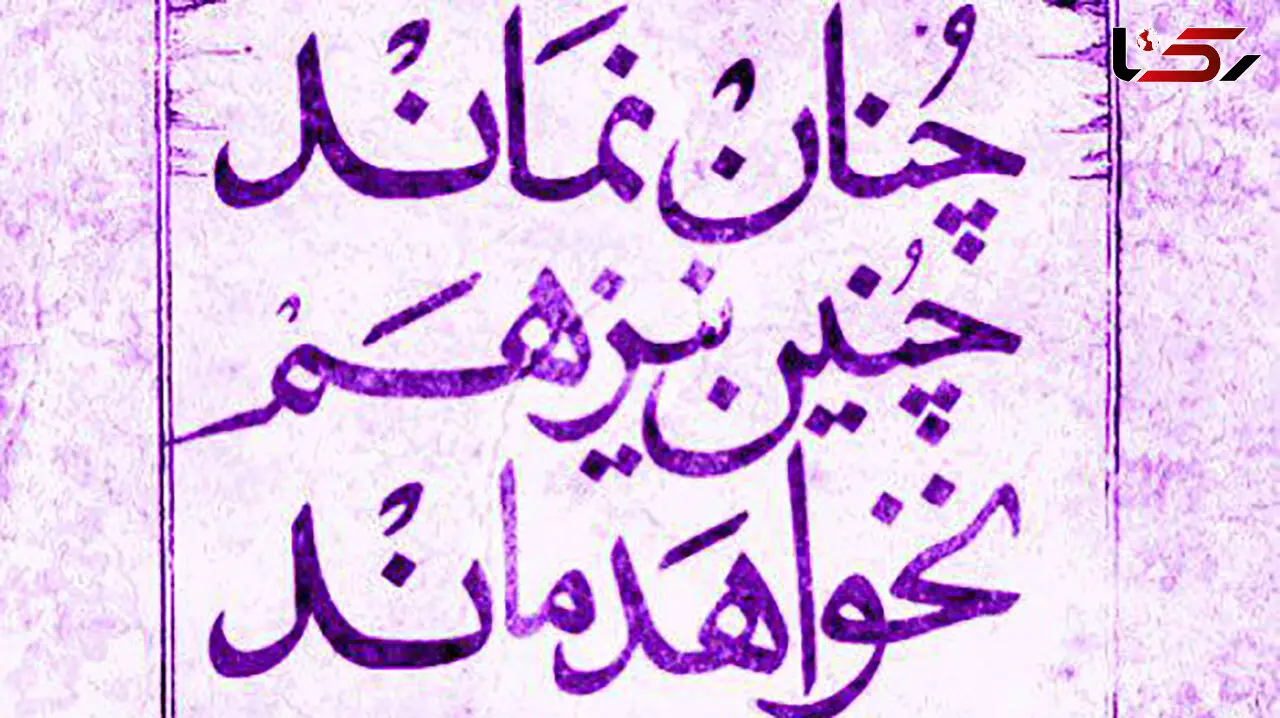 رکنا
چُنان نَماند
چُنین نیز هَم
نخواهَد ماند